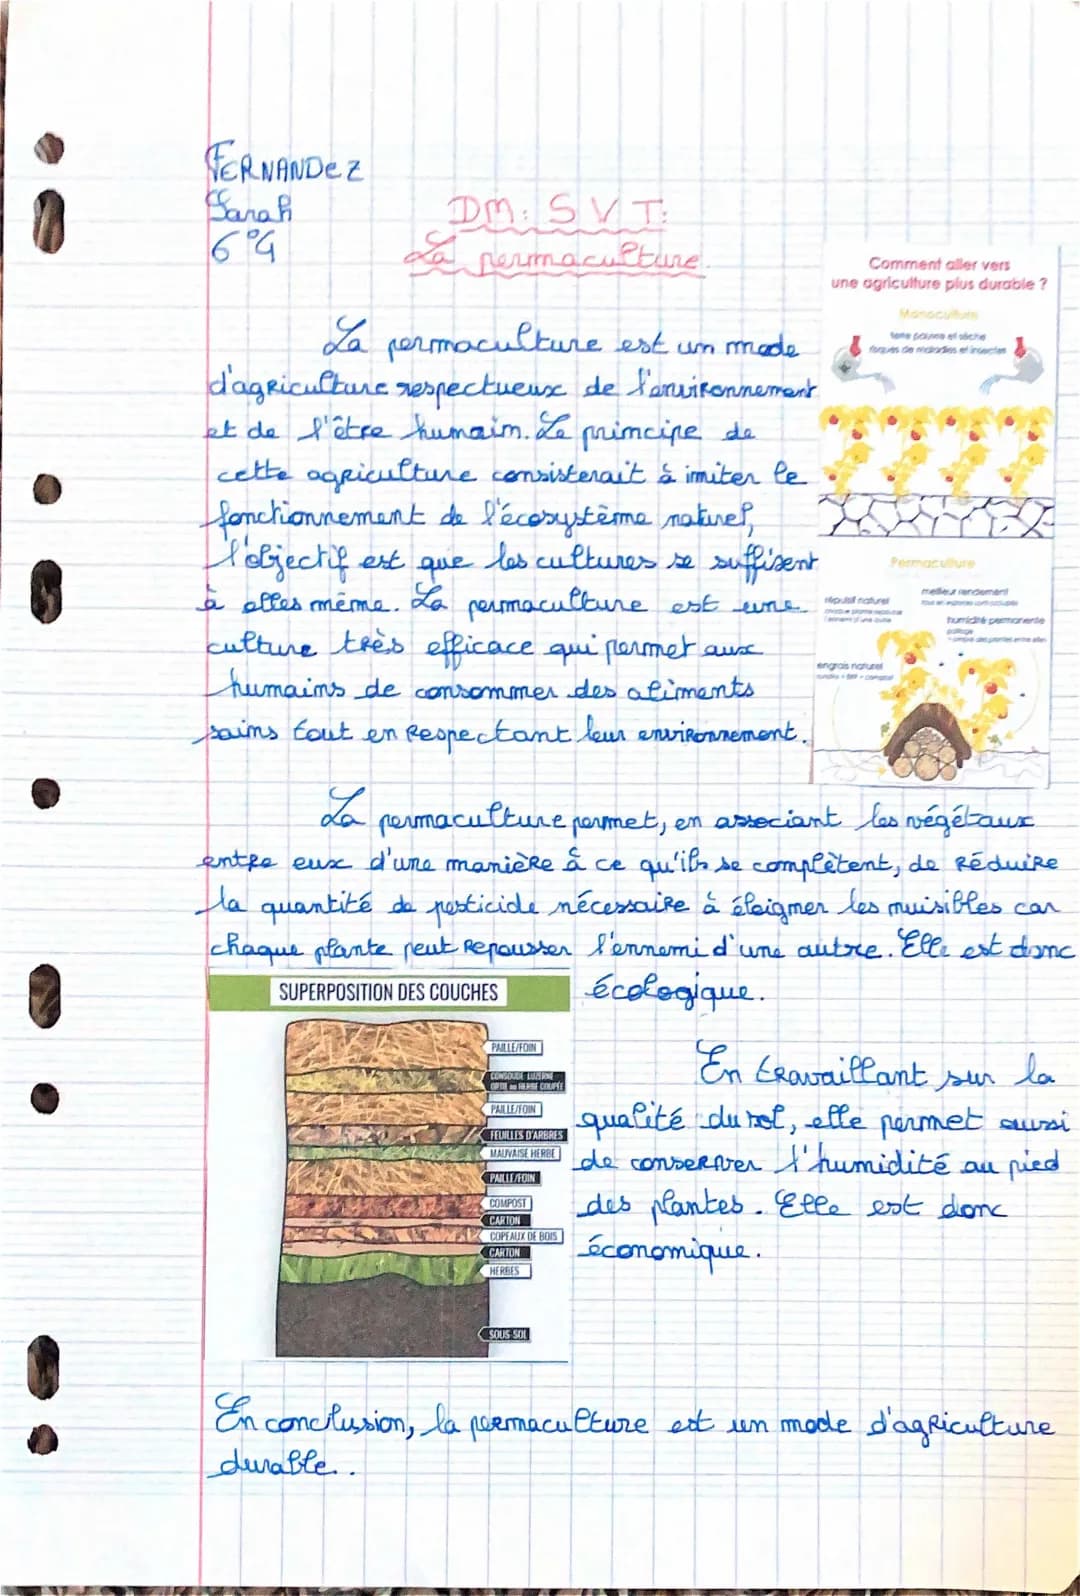 FERNANDEZ
Sarah
6°4
DM: SVT:
La permaculture.
Comment aller vers
une agriculture plus durable ?
Monoculture
terre pauvre et sèche
risques de maladies et insectes
La permaculture est un mode
d'agriculture respectueux de l'environnement
et de l'être humain. Le principe de
cette agriculture consisterait à imiter le
fonctionnement de l'écosystème naturel,
l'objectif est que les cultures se suffisent
à elles même. La permaculture est une
culture très efficace qui permet aux
humains de consommer des aliments
sains tout en respectant leur environnement.
Permaculture
meilleur rendement
répulsif naturel
humidité permanente
paillage
engrais naturel
La permaculture permet, en associant les végétaux
entre eux d'une manière à ce qu'ils se complètent, de réduire
la quantité de pesticide nécessaire à éloigner les nuisibles car
chaque plante peut repousser l'ennemi d'une autre. Elle est donc
écologique.
SUPERPOSITION DES COUCHES
PAILLE/FOIN
CONSOUDE LUZERNE
ORTIE ou HERBE COUPÉE
PAILLE/FOIN
FEUILLES D'ARBRES
MAUVAISE HERBE
PAILLE/FOIN
COMPOST
CARTON
COPEAUX DE BOIS
CARTON
HERBES
SOUS-SOL
En travaillant sur la
qualité du sol, elle permet aussi
de conserver l'humidité au pied
des plantes. Elle est donc
économique.
En conclusion, la permaculture est un mode d'agriculture
durable..